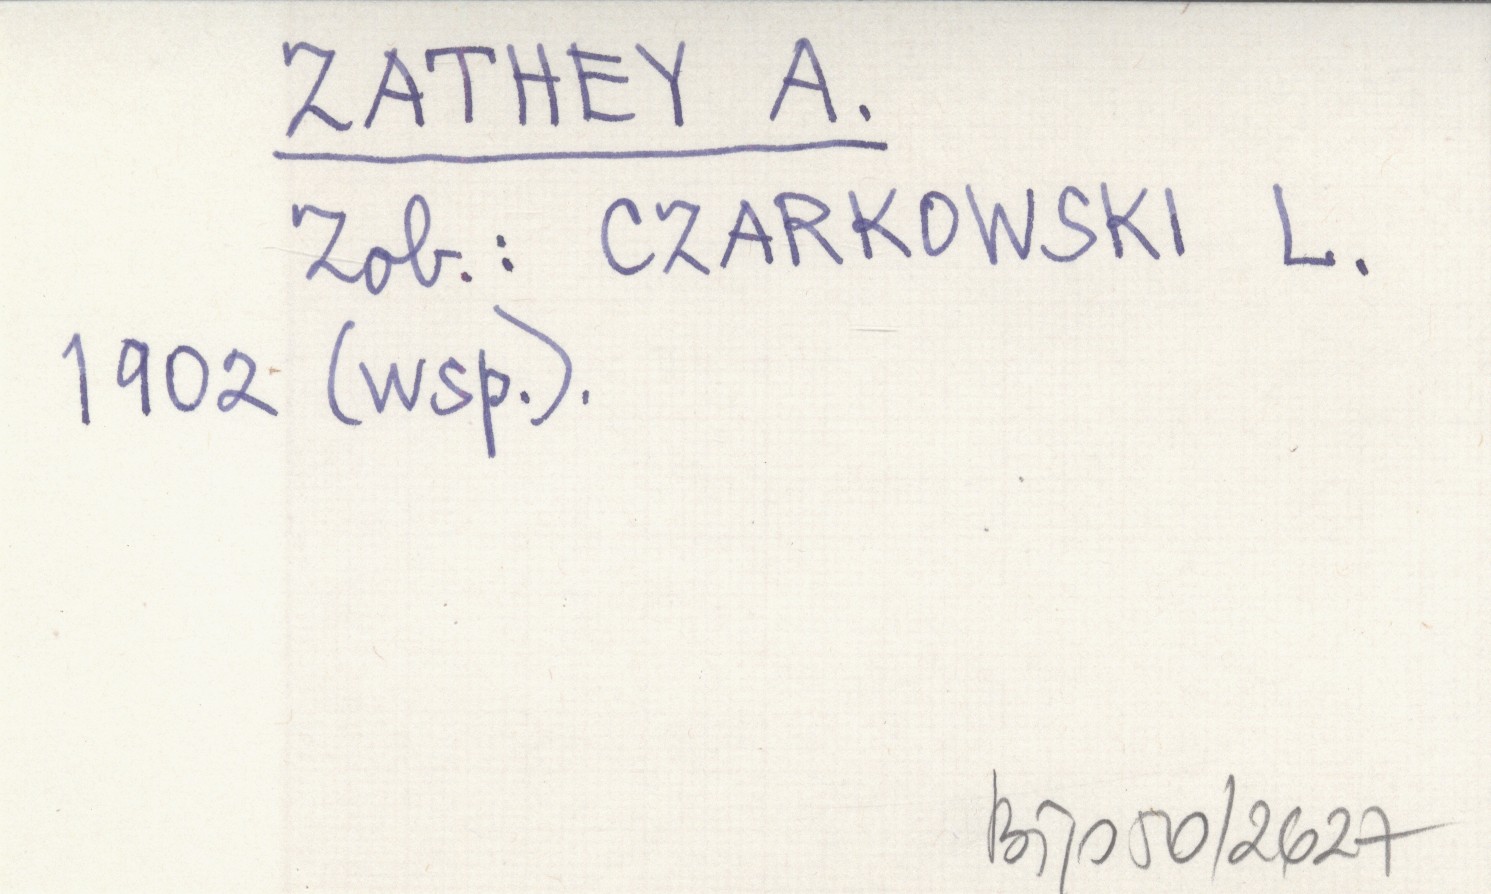 ZATHEY A.
Zob.: CZARKOWSKI L.
1902 (wsp.).
50/2627